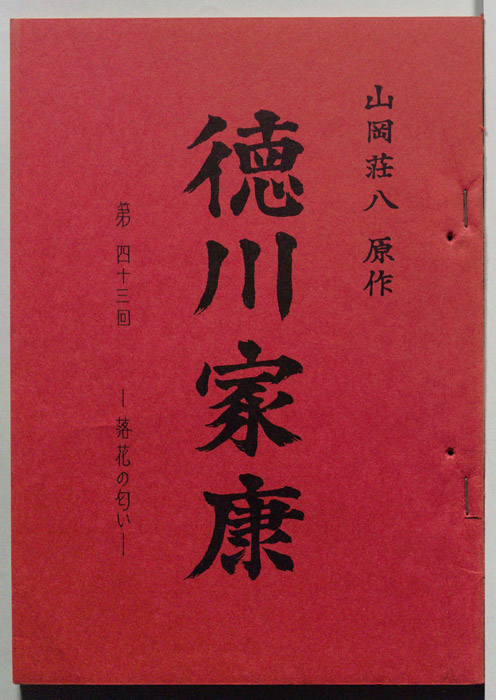 山岡荘八 原作
徳川家康
第四十三回 ―落花の匂い―